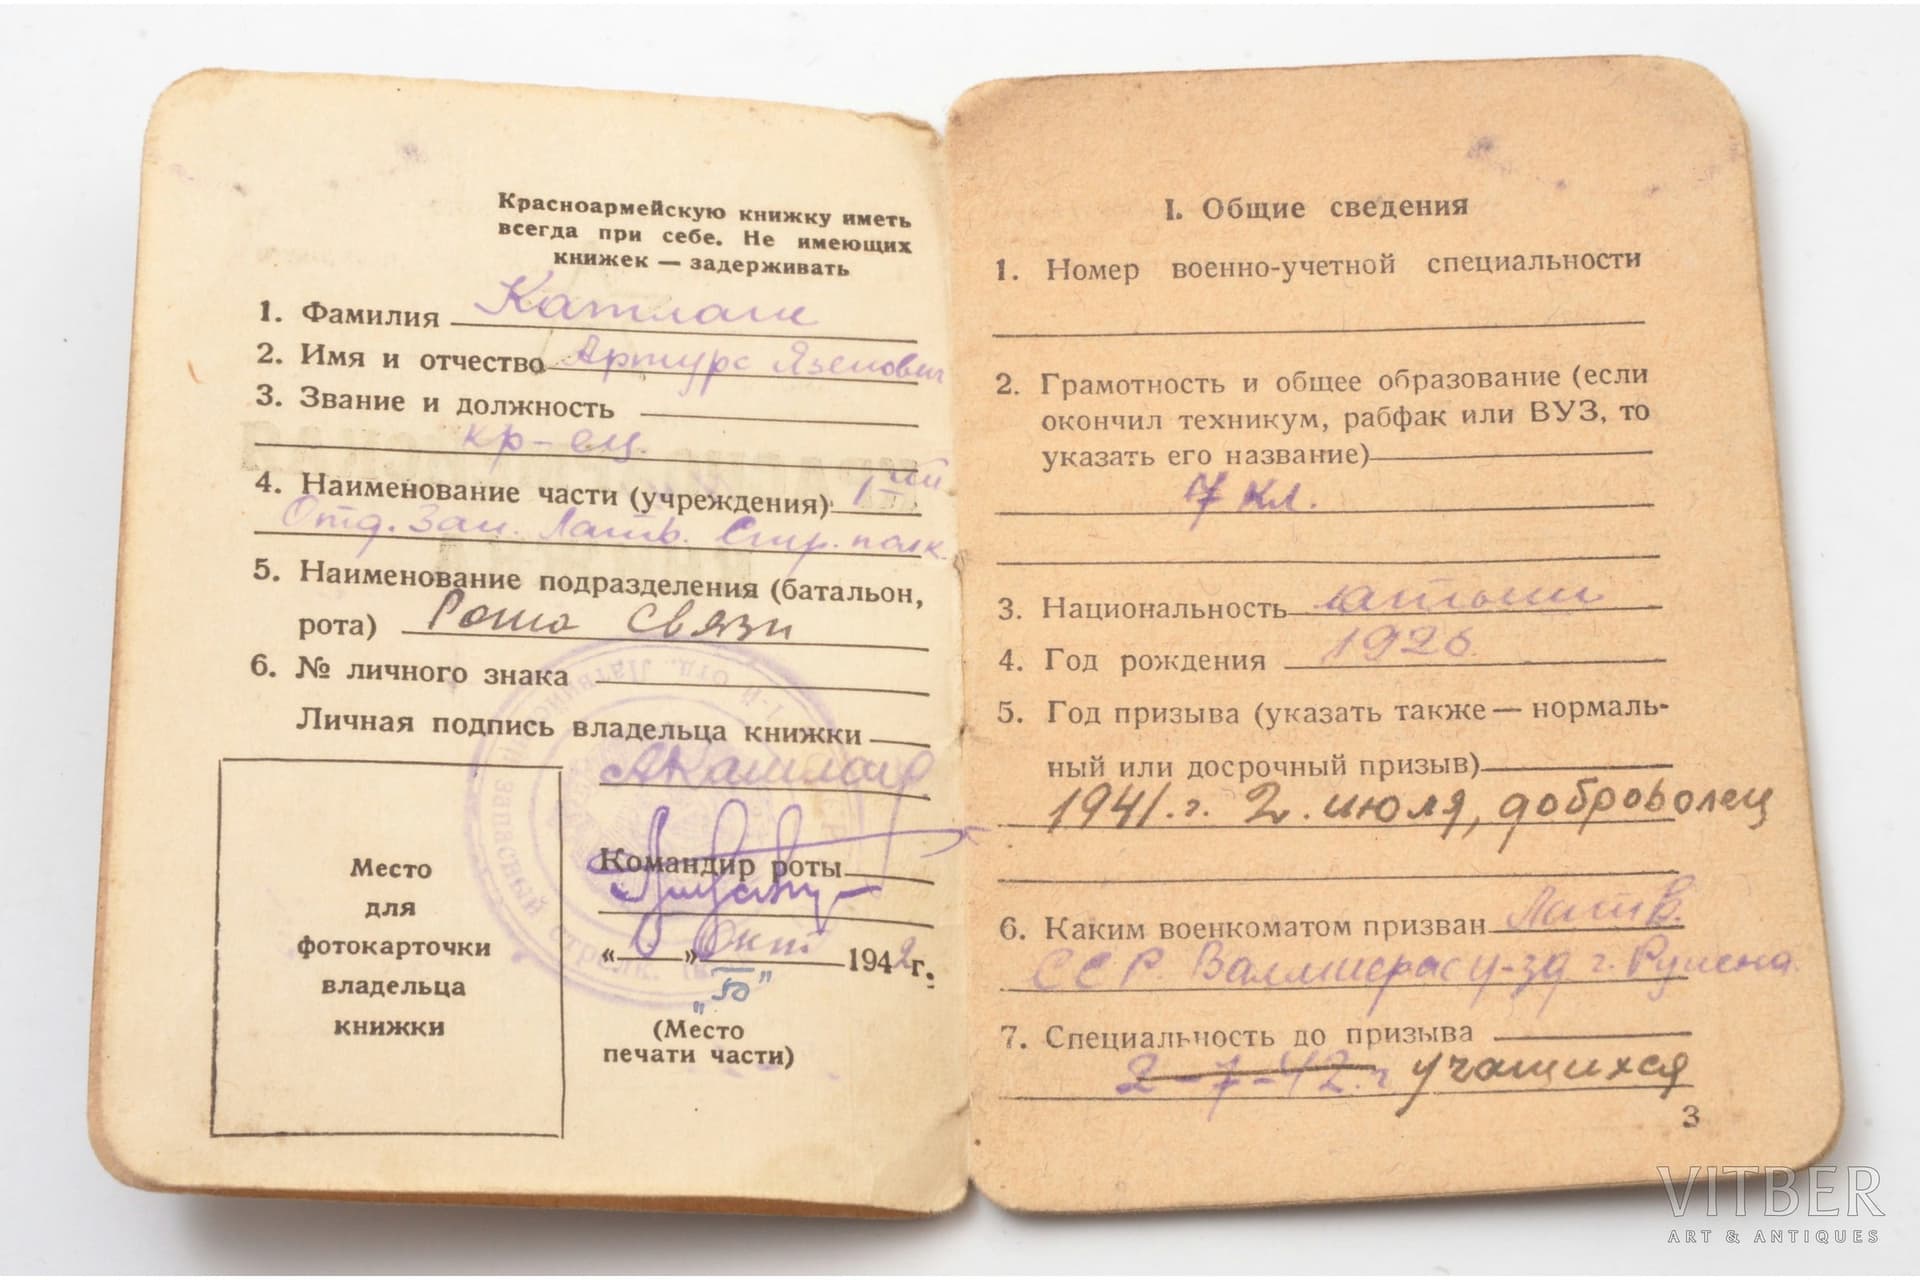 Красноармейскую книжку иметь
всегда при себе. Не имеющих
книжек — задерживать
1. Фамилия Катлапс
2. Имя и отчество Артурс Язепович
3. Звание и должность
кр-ец.
4. Наименование части (учреждения) 1ый
Отд. Зап. Латв. Стр. полк.
5. Наименование подразделения (батальон,
рота) Рота связи
6. № личного знака
Личная подпись владельца книжки
Место
для
фотокарточки
владельца
книжки
Командир роты
« » Окт 1942 г.
"Б"
(Место
печати части)
I. Общие сведения
1. Номер военно-учетной специальности
2. Грамотность и общее образование (если
окончил техникум, рабфак или ВУЗ, то
указать его название)
7 кл.
3. Национальность латыш
4. Год рождения 1926
5. Год призыва (указать также — нормаль-
ный или досрочный призыв)
1941. г. 2. июля, доброволец
6. Каким военкоматом призван Латв.
ССР. Валмиерас у-зд г. Руиена.
7. Специальность до призыва
2-7-42. г учащихся
3
VITBER
ART & ANTIQUES